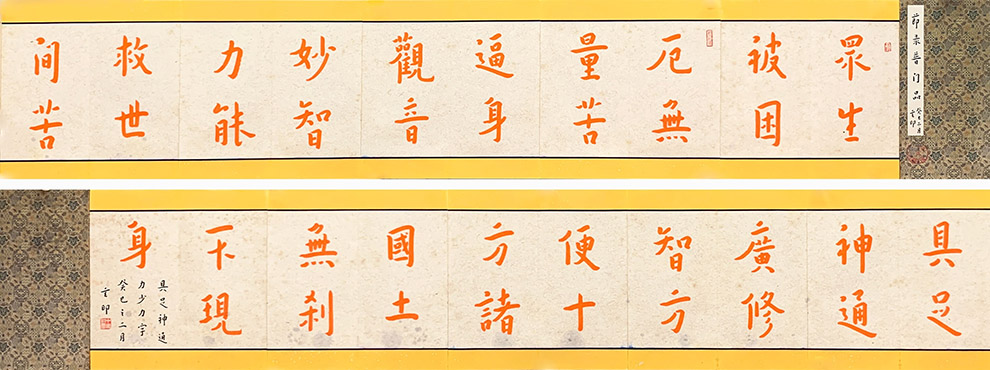 節录普门品
癸巳二月
眾生
被困
厄無
量苦
逼身
觀音
妙智
力能
救世
间苦
具足
神通
廣修
智方
便十
方諸
國土
無刹
不現
身
具足神通
力少力字
癸巳之二月
印